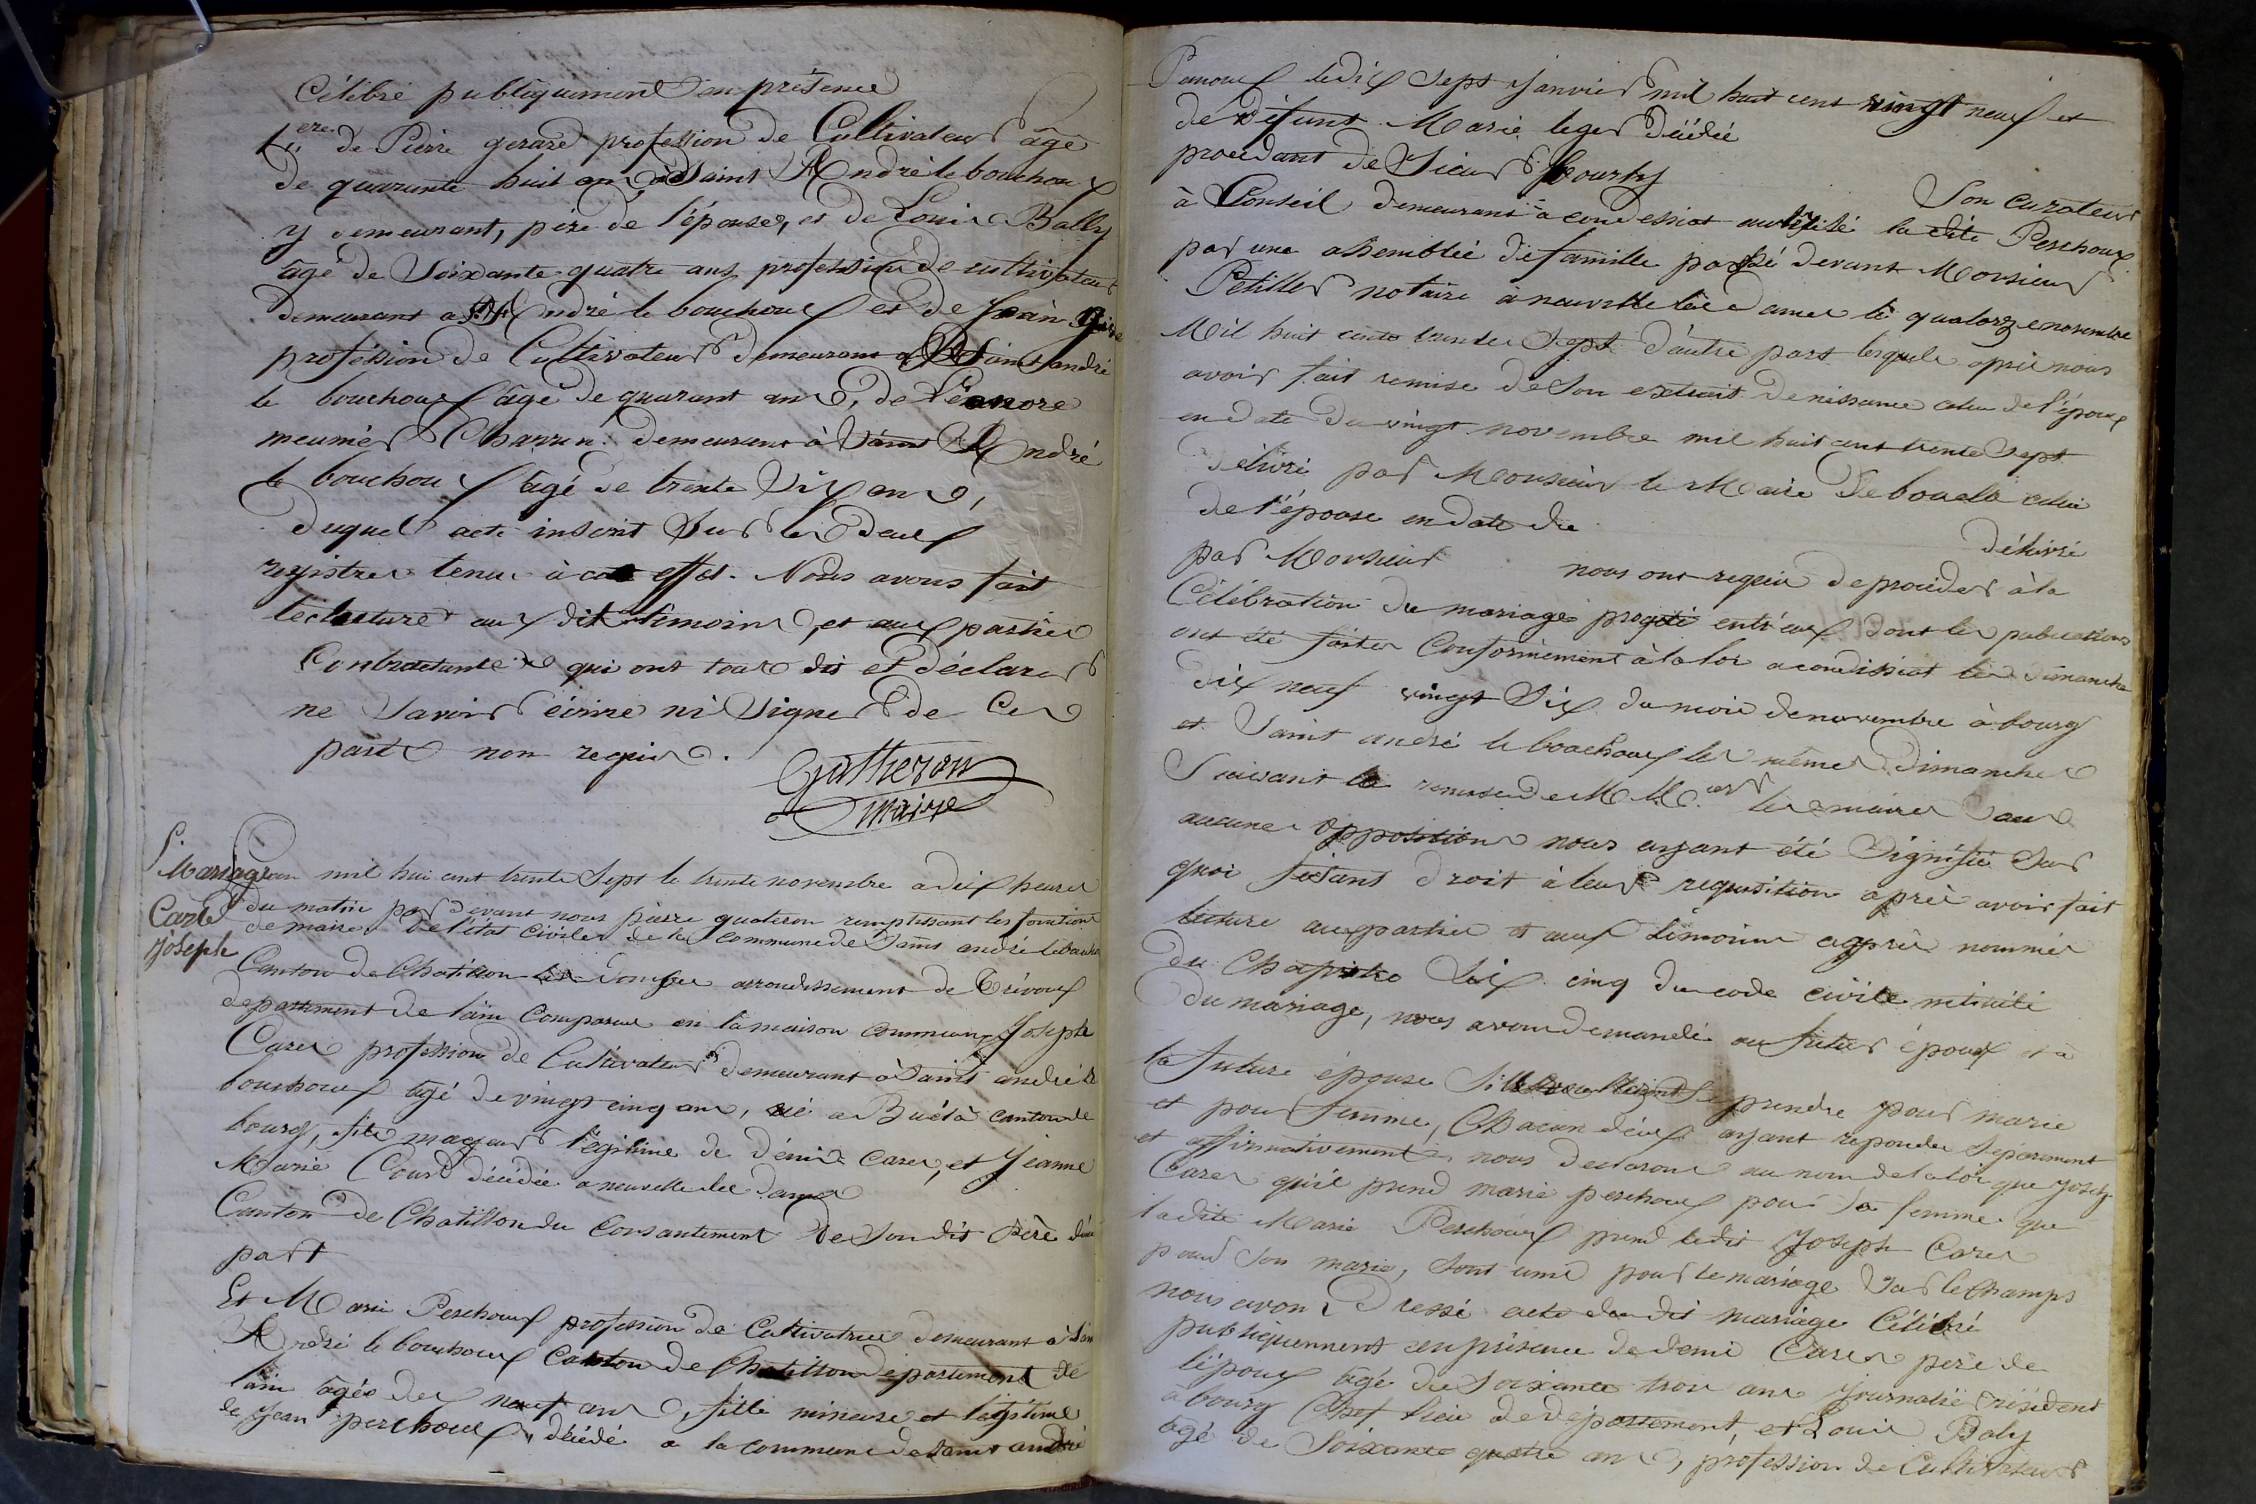 Célébré publiquement en présence
1ere de Pierre gerard profession de Cultivateur âgé
de quarante huit an à Saint André le bouchoux
y demeurant, père de l'épouse, et de Louis Bally
âgé de Soixante quatre ans profession de cultivateur
demeurant a St André le bouchoux et de Jean
profession de Cultivateur demeurant a Saint andré
le bouchoux âgé de quarant ans, de Léonore
meunier Charron demeurant à Saint André
le bouchoux âgé de trente Six ans,
duquel acte inscrit Sur les deux
registres tenu à cet effet. Nous avons fait
lecture aux dit témoins, et aux parties
Contractantes qui ont tous dit et déclarer
ne Savoir écrire ni Signer de Ce
part non requis.
Gutheron
maire
Mariage
Carer
Joseph
L'an mil hui cent trente Sept le trente novembre a dix heures
du matin par devant nous pierre guateron remplissant les fonction
de maire de l'état civiles de la commune de Saint andré le bouchoux
Canton de Chatillon les Dombes arrondissement de Trévoux
departement de l'ain Comparue en la maison commune Joseph
Carer profession de Cultivateur demeurant à Saint andré le
bouchoux âgé de vingt cinq ans, né a Buéla canton de
bourg, fils mageur légitime de dénis Carer, et Jeanne
Marie Court décédée a neuville les dames
Canton de Chatillon du Consantement de Son dit Père d'une
part
Et Marie Perchoux profession de Cultivatrice demeurant à Sain
André le bouchoux Canton de Chatillon département de
l'ain âgée de neuf ans, fille mineure et légitime
de Jean perchoux, décédé a la commune de Saint andré
le dix Sept Janvier mil huit cent vingt neuf et
de défunt Marie leger décédée
procedant de Sieur Courty Son curateur
à Conseil, demeurant à condessiat la dite Perchoux
par une assemblée de famille passé devant Monsieur
Petiller notaire à neuville les dames le quatorze novembre
Mil huit cents trente Sept d'autre part lesquels après nous
avoir fait remise de Son extrait de nissance celui de l'époux
en date du vingt novembre mil huit cent trente Sept
délivré par Monsieur le Maire de bouela celui
de l'épouse en date du délivré
par Monsieur nous ont requis de proceder à la
Célébration du mariage progeté entre eux dont les publications
ont été faites Conformément à la loi a condissiat les dimanche
dix neuf vingt Six du mois de novembre à bourg
et Saint andré le bouchoux les mêmes Dimanches
Suivant la remise de MM. les maires Sans
aucunes opposition nous ayant été Signifié Sur
quoi faisant droit à leur requisition après avoir fait
lecture aux parties et aux témoins apprès nommés
du Chapitre Six cinq du code civile intitulé
du mariage, nous avons demandé au futur époux et à
la future épouse S'ils veullent Se prendre pour marie
et pour femme, Chacun d'eux ayant repondu Separement
et affirmativement, nous declarons au nom de la loi que Joseph
Carer qu'il prend marie perchoux pour Sa femme que
ladite Marie Perchoux prend ledit Joseph Carer
pour Son marie, Sont unis pour le mariage Sur le Champs
nous avons Dressé acte du dit mariage Célébré
publiquement en présence de denis Carer père de
l'époux âgé de Soixante trois ans Journalié résident
à bourg Chef lieu de département, et Louis Baly
âgé de Soixante quatre ans, profession de Cultivateur